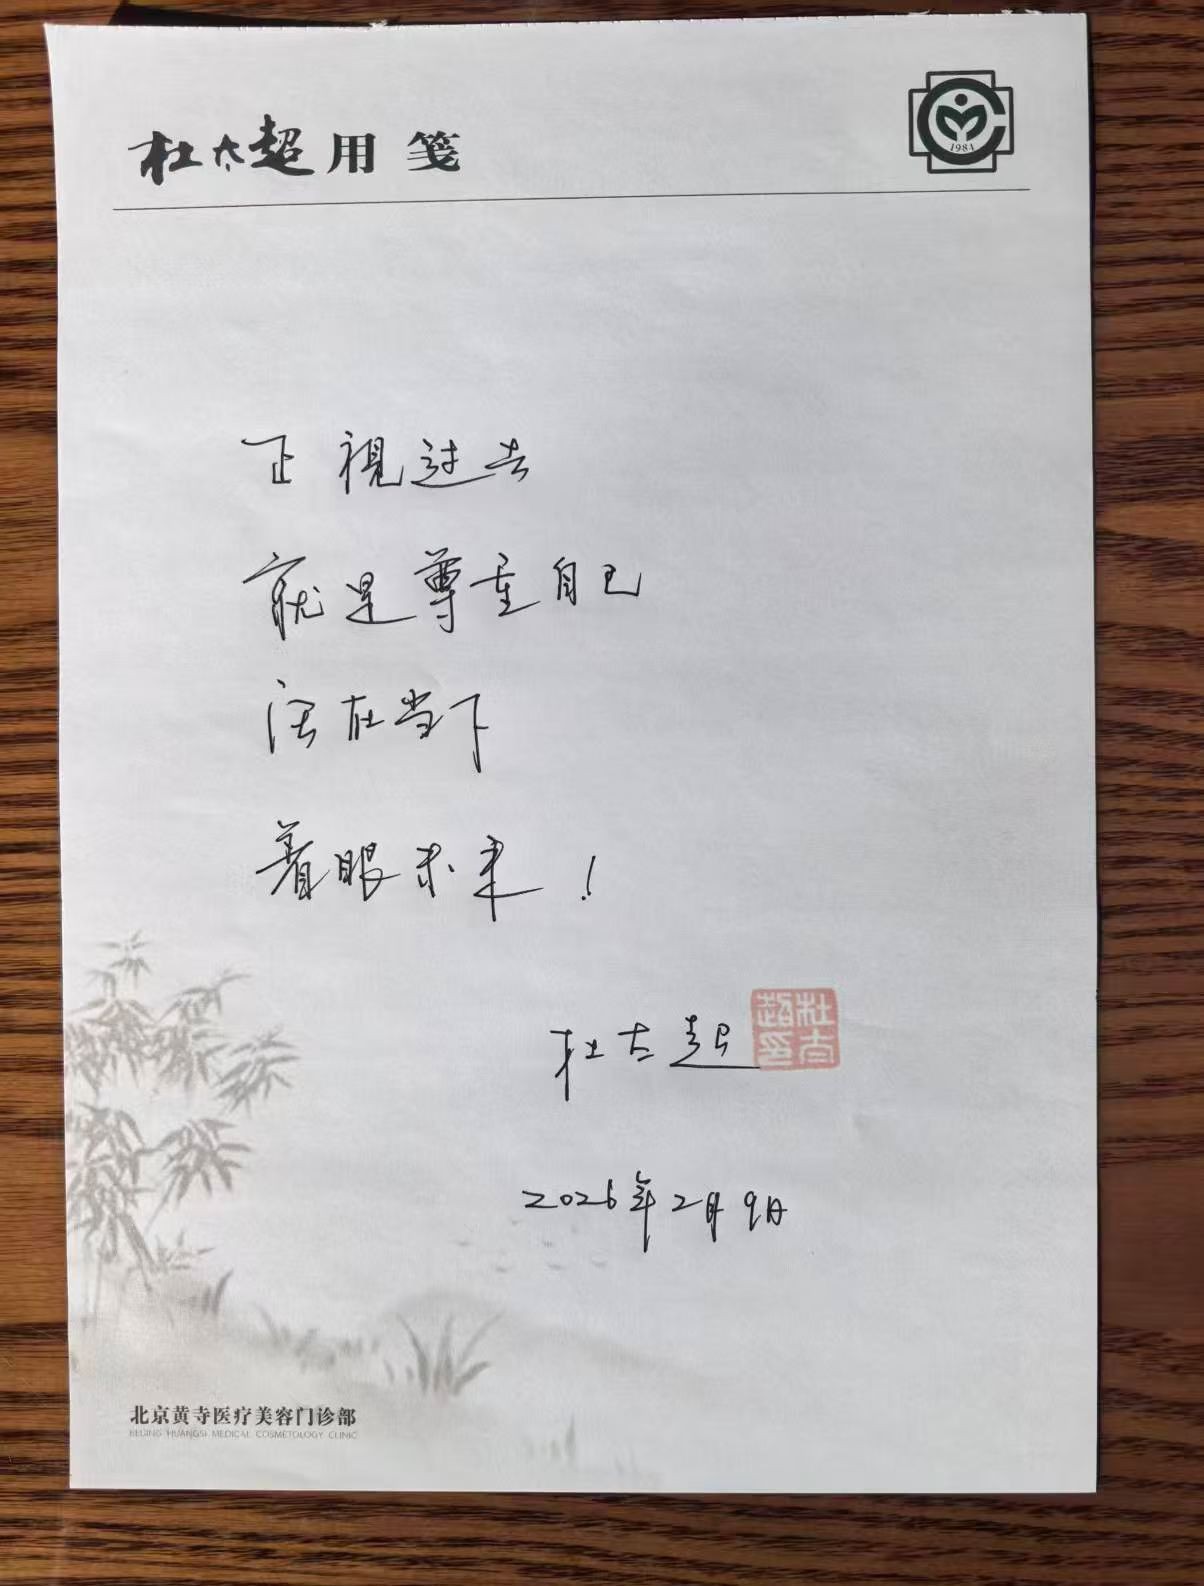 杜太超用笺
1984
正視过去
就是尊重自己
活在当下
着眼未来！
杜太超
杜太超印
2026年2月9日
北京黄寺医疗美容门诊部
BEIJING HUANGSI MEDICAL COSMETOLOGY CLINIC